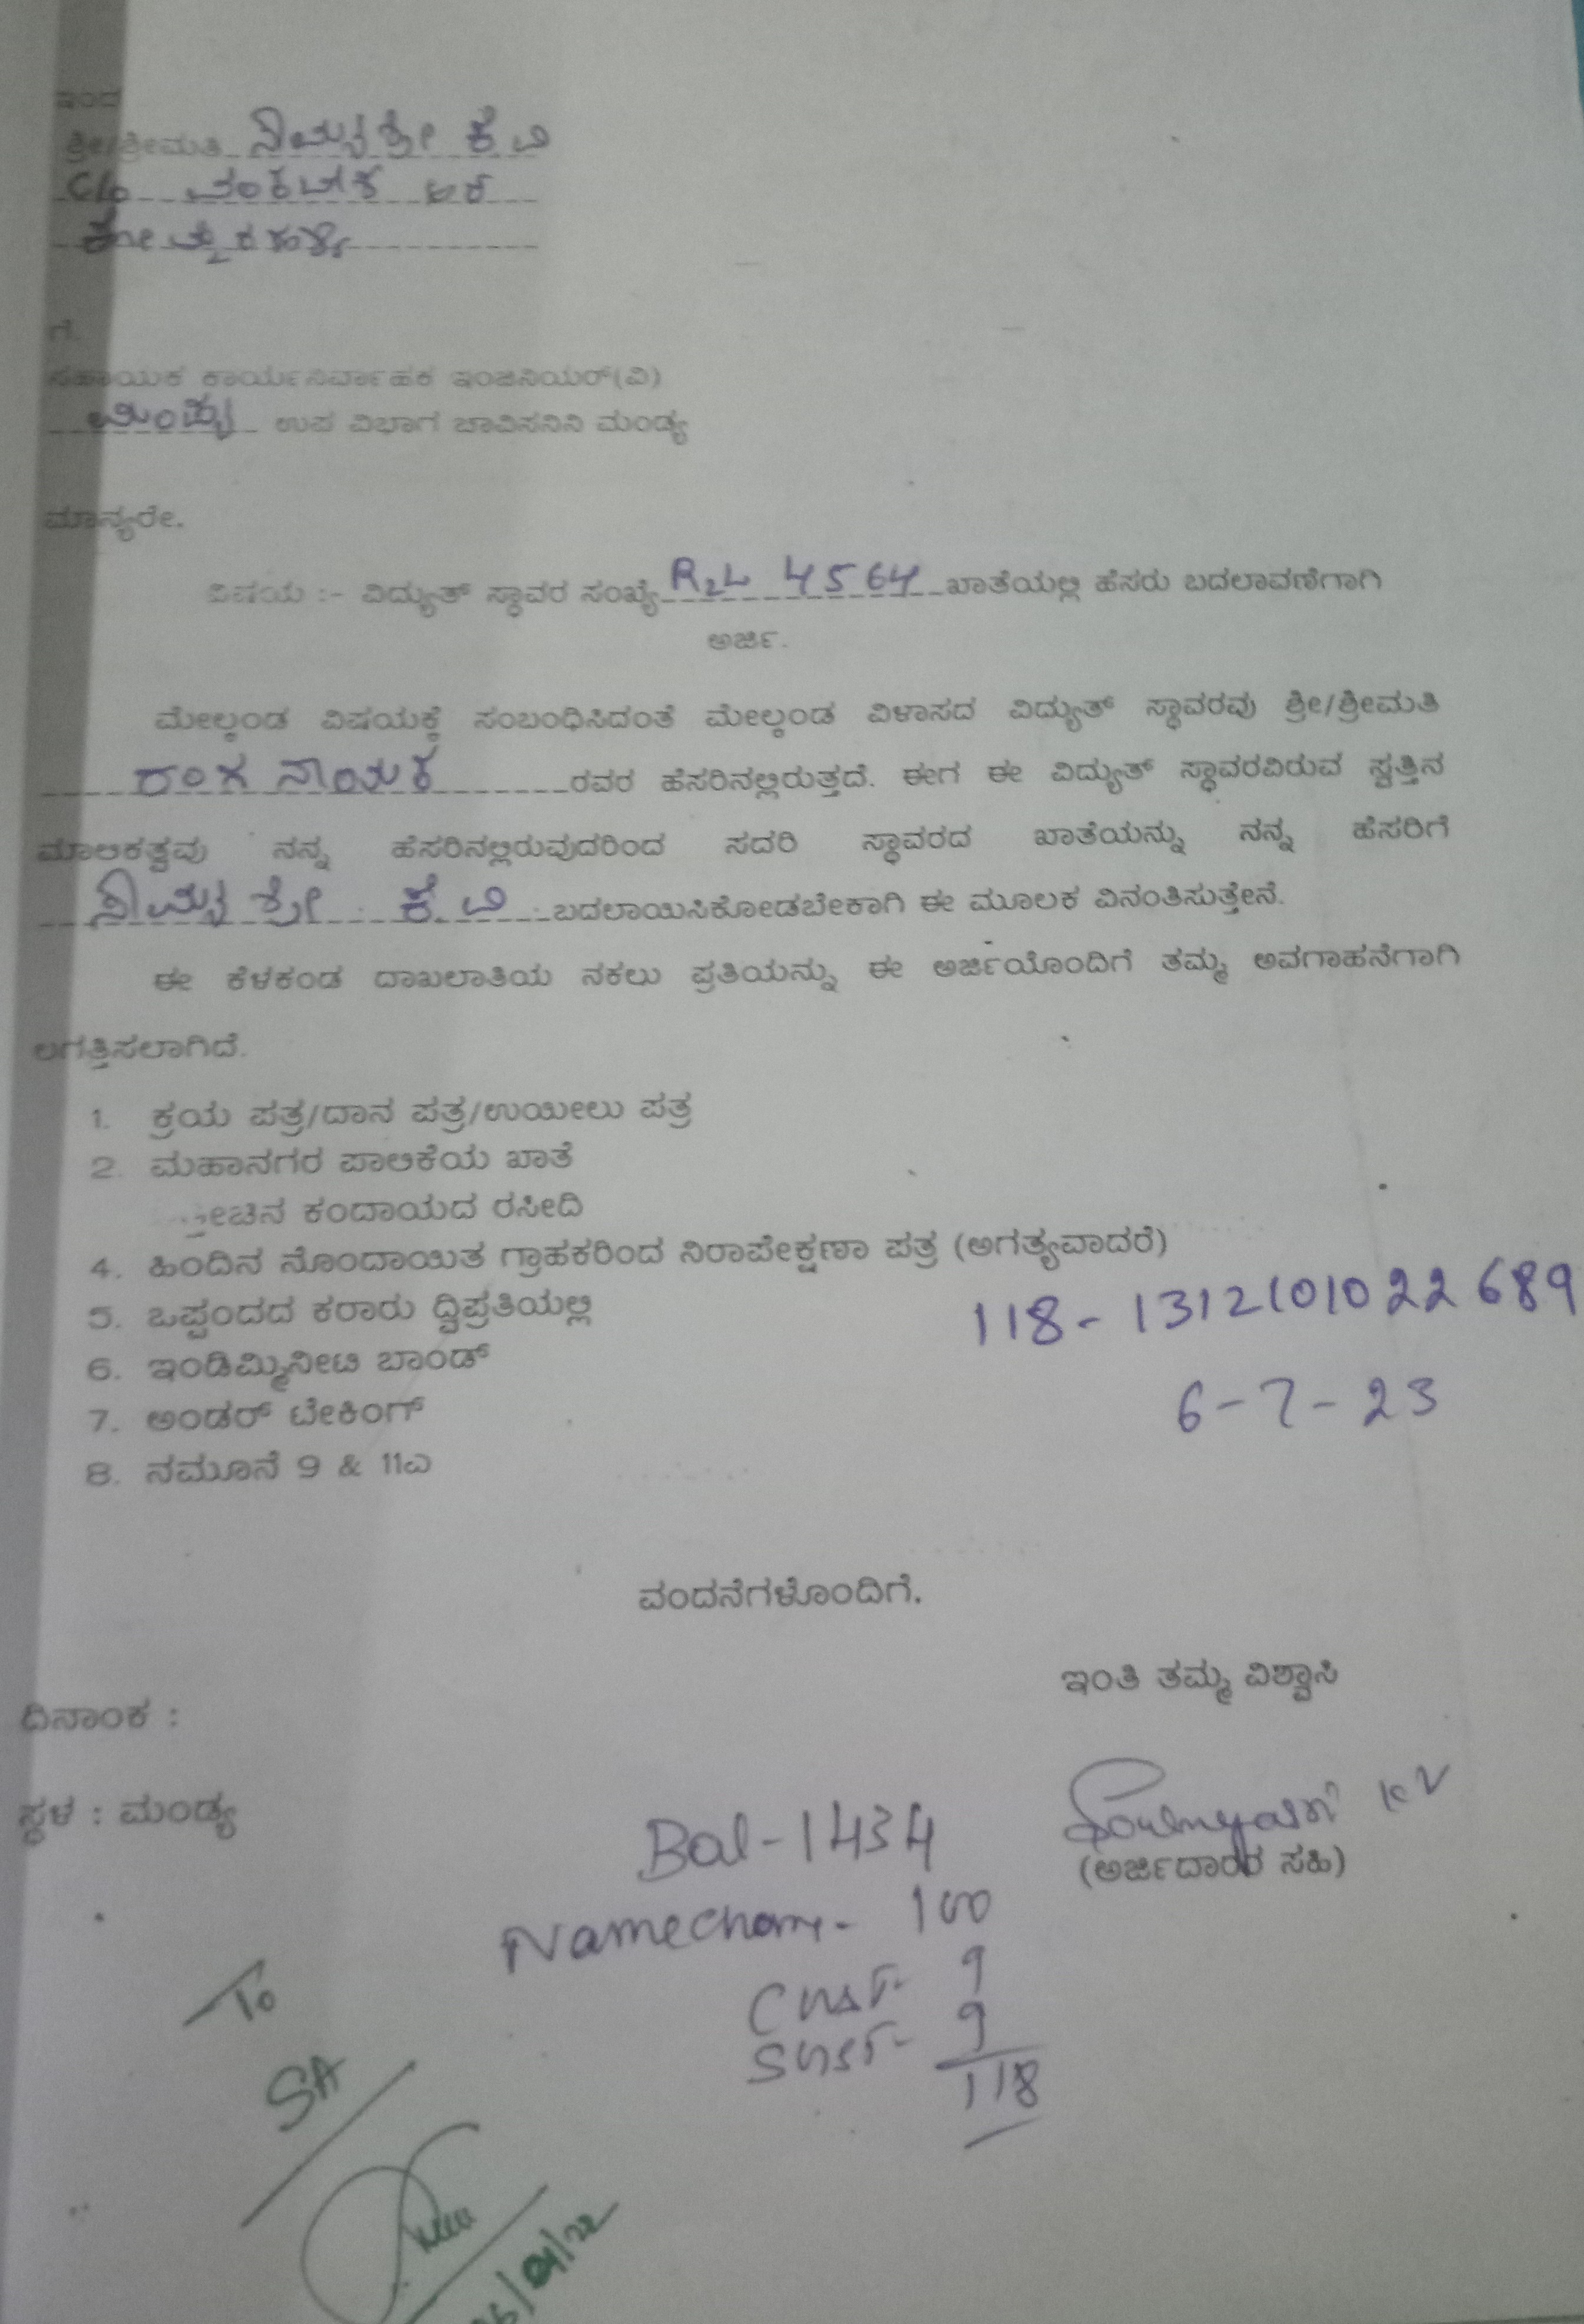 ಇಂದ
ಶ್ರೀ/ಶ್ರೀಮತಿ ಸೌಮ್ಯಶ್ರೀ ಕೆ ವಿ
C/o
ಗೆ.
ಸಹಾಯಕ ಕಾರ್ಯನಿರ್ವಾಹಕ ಇಂಜಿನಿಯರ್(ವಿ)
ಮಂಡ್ಯ ಉಪ ವಿಭಾಗ ಚಾವಿಸನಿನಿ ಮಂಡ್ಯ
ಮಾನ್ಯರೇ.
ವಿಷಯ :- ವಿದ್ಯುತ್ ಸ್ಥಾವರ ಸಂಖ್ಯೆ R2L 4564 ಖಾತೆಯಲ್ಲಿ ಹೆಸರು ಬದಲಾವಣೆಗಾಗಿ
ಅರ್ಜಿ.
ಮೇಲ್ಕಂಡ ವಿಷಯಕ್ಕೆ ಸಂಬಂಧಿಸಿದಂತೆ ಮೇಲ್ಕಂಡ ವಿಳಾಸದ ವಿದ್ಯುತ್ ಸ್ಥಾವರವು ಶ್ರೀ/ಶ್ರೀಮತಿ
ರಂಗ ನಾಯಕ ರವರ ಹೆಸರಿನಲ್ಲಿರುತ್ತದೆ. ಈಗ ಈ ವಿದ್ಯುತ್ ಸ್ಥಾವರವಿರುವ ಸ್ವತ್ತಿನ
ಮಾಲಿಕತ್ವವು ನನ್ನ ಹೆಸರಿನಲ್ಲಿರುವುದರಿಂದ ಸದರಿ ಸ್ಥಾವರದ ಖಾತೆಯನ್ನು ನನ್ನ ಹೆಸರಿಗೆ
ಸೌಮ್ಯ ಶ್ರೀ ಕೆ ವಿ ಬದಲಾಯಿಸಿಕೋಡಬೇಕಾಗಿ ಈ ಮೂಲಕ ವಿನಂತಿಸುತ್ತೇನೆ.
ಈ ಕೆಳಕಂಡ ದಾಖಲಾತಿಯ ನಕಲು ಪ್ರತಿಯನ್ನು ಈ ಅರ್ಜಿಯೊಂದಿಗೆ ತಮ್ಮ ಅವಗಾಹನೆಗಾಗಿ
ಲಗತ್ತಿಸಲಾಗಿದೆ.
1. ಕ್ರಯ ಪತ್ರ/ದಾನ ಪತ್ರ/ಉಯೀಲು ಪತ್ರ
2. ಮಹಾನಗರ ಪಾಲಿಕೆಯ ಖಾತೆ
ಕಂದಾಯದ ರಸೀದಿ
4. ಹಿಂದಿನ ನೊಂದಾಯಿತ ಗ್ರಾಹಕರಿಂದ ನಿರಾಪೇಕ್ಷಣಾ ಪತ್ರ (ಅಗತ್ಯವಾದರೆ)
5. ಒಪ್ಪಂದದ ಕರಾರು ದ್ವಿಪ್ರತಿಯಲ್ಲಿ
118-1312101022689
6. ಇಂಡಿಮ್ನಿನೀಟಿ ಬಾಂಡ್
6-7-23
7. ಅಂಡರ್ ಟೇಕಿಂಗ್
8. ನಮೂನೆ 9 & 11ಎ
ವಂದನೆಗಳೊಂದಿಗೆ.
ಇಂತಿ ತಮ್ಮ ವಿಶ್ವಾಸಿ
ದಿನಾಂಕ :
ಸ್ಥಳ : ಮಂಡ್ಯ
Soumyasri K V
(ಅರ್ಜಿದಾರರ ಸಹಿ)
Bal-1434
Namechan- 100
CGST- 9
SGST- 9
118
To
SA